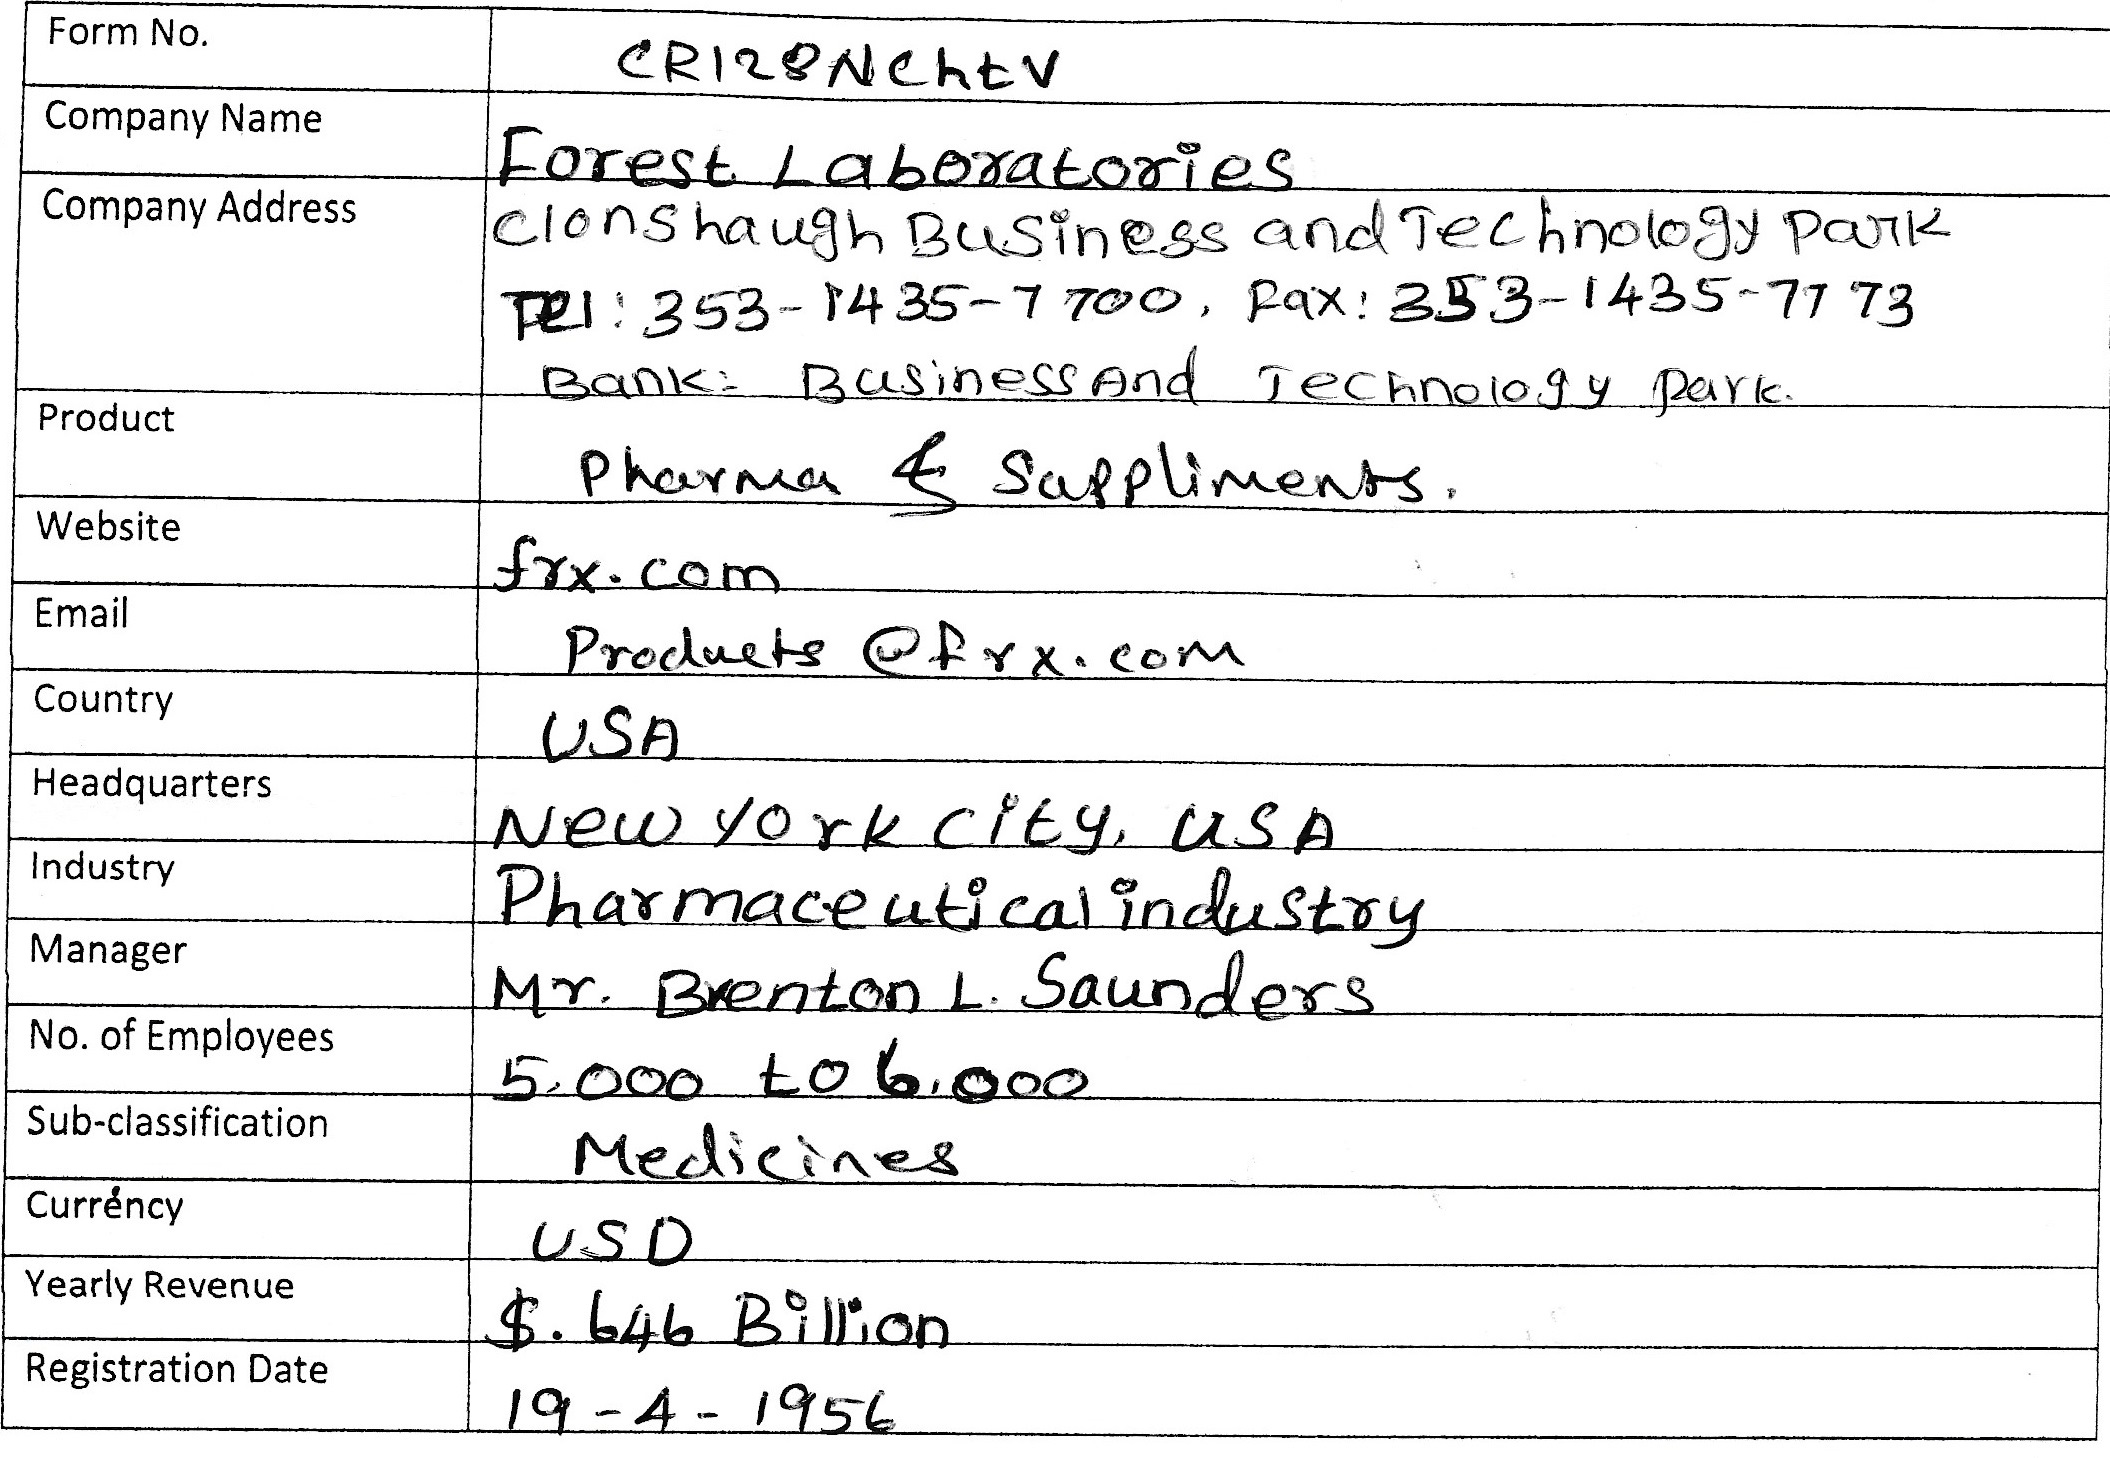 Form No. CR128NChtV
Company Name Forest Laboratories
Company Address Clonshaugh Business and Technology Park
Tel: 353-1435-7700, Fax: 353-1435-7773
Bank: Business And Technology Park.
Product Pharma & Suppliments.
Website frx.com
Email Products @frx.com
Country USA
Headquarters New York City, USA
Industry Pharmaceutical industry
Manager Mr. Brenton L. Saunders
No. of Employees 5,000 to 6,000
Sub-classification Medicines
Currency USD
Yearly Revenue $.646 Billion
Registration Date 19-4-1956